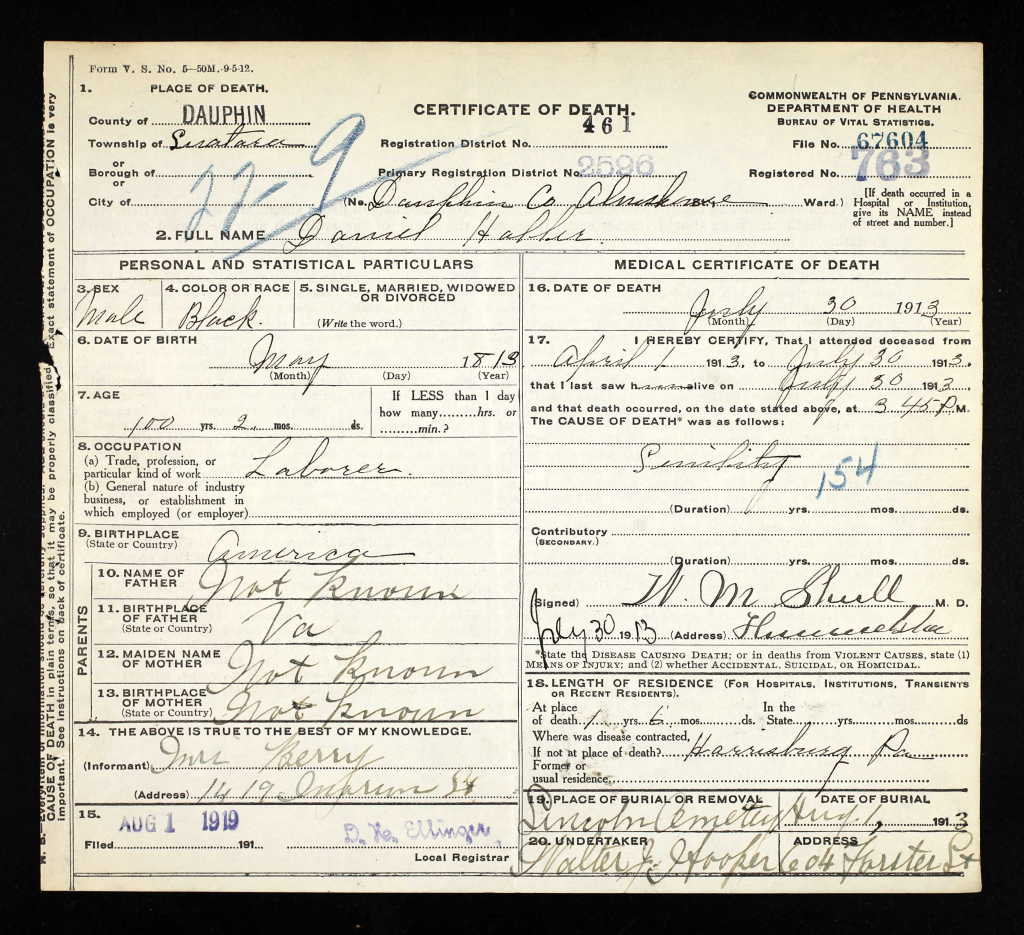 Form V. S. No. 5—50M.-9-5-12.
1. PLACE OF DEATH.
County of DAUPHIN
Township of Swatara
or
Borough of
or
City of
CERTIFICATE OF DEATH.
461
Registration District No.
Primary Registration District No. 2596
(No. Dauphin Co Almshouse Ward.)
COMMONWEALTH OF PENNSYLVANIA.
DEPARTMENT OF HEALTH
BUREAU OF VITAL STATISTICS.
File No. 67604
Registered No. 763
[If death occurred in a
Hospital or Institution,
give its NAME instead
of street and number.]
22-9
2. FULL NAME Daniel
PERSONAL AND STATISTICAL PARTICULARS
3. SEX
Male
4. COLOR OR RACE
Black.
5. SINGLE, MARRIED, WIDOWED
OR DIVORCED
(Write the word.)
6. DATE OF BIRTH
May 1813
(Month) (Day) (Year)
7. AGE
100 yrs. 2 mos. ds.
If LESS than 1 day
how many.........hrs. or
.........min.?
8. OCCUPATION
(a) Trade, profession, or
particular kind of work Laborer.
(b) General nature of industry
business, or establishment in
which employed (or employer)
9. BIRTHPLACE
(State or Country) America
PARENTS
10. NAME OF
FATHER Not Known
11. BIRTHPLACE
OF FATHER
(State or Country) Va
12. MAIDEN NAME
OF MOTHER Not Known
13. BIRTHPLACE
OF MOTHER
(State or Country) Not Known
14. THE ABOVE IS TRUE TO THE BEST OF MY KNOWLEDGE.
(Informant) Mrs Berry
(Address) 1419 St
15.
AUG 1 1919
Filed 191
D. Ellinger,
Local Registrar
MEDICAL CERTIFICATE OF DEATH
16. DATE OF DEATH
July 30 1913
(Month) (Day) (Year)
17. I HEREBY CERTIFY, That I attended deceased from
April 1 1913, to July 30 1913.
that I last saw h alive on July 30 1913.
and that death occurred, on the date stated above, at 3 45 P M.
The CAUSE OF DEATH* was as follows:
Senility
154
(Duration) yrs. mos. ds.
Contributory
(SECONDARY.)
(Duration) yrs. mos. ds.
(Signed) W. M Shull M. D.
July 30 1913 (Address)
*State the DISEASE CAUSING DEATH; or in deaths from VIOLENT CAUSES, state (1)
MEANS OF INJURY; and (2) whether ACCIDENTAL, SUICIDAL, OR HOMICIDAL.
18. LENGTH OF RESIDENCE (FOR HOSPITALS, INSTITUTIONS, TRANSIENTS
OR RECENT RESIDENTS).
At place
of death 1 yrs. 6 mos. ds.
In the
State yrs. mos. ds
Where was disease contracted,
If not at place of death? Harrisburg Pa
Former or
usual residence
19. PLACE OF BURIAL OR REMOVAL
Lincoln Cemetery
DATE OF BURIAL
Aug. 1, 1913
20. UNDERTAKER
Walter J. Hooper
ADDRESS
604 Forster St
CAUSE OF DEATH in plain terms, so that it may be properly classified. Exact statement of OCCUPATION is very
important. See instructions on back of certificate.